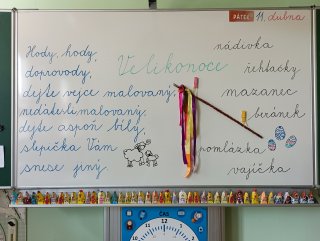 PÁTEK 11. dubna
Velikonoce
Hody, hody,
doprovody,
dejte vejce malovaný,
nedáte-li malovaný,
dejte aspoň bílý,
slepička Vám
snese jiný
nádivka
řehtačky
mazanec
beránek
pomlázka
vajíčka
ČAS
11 12 1